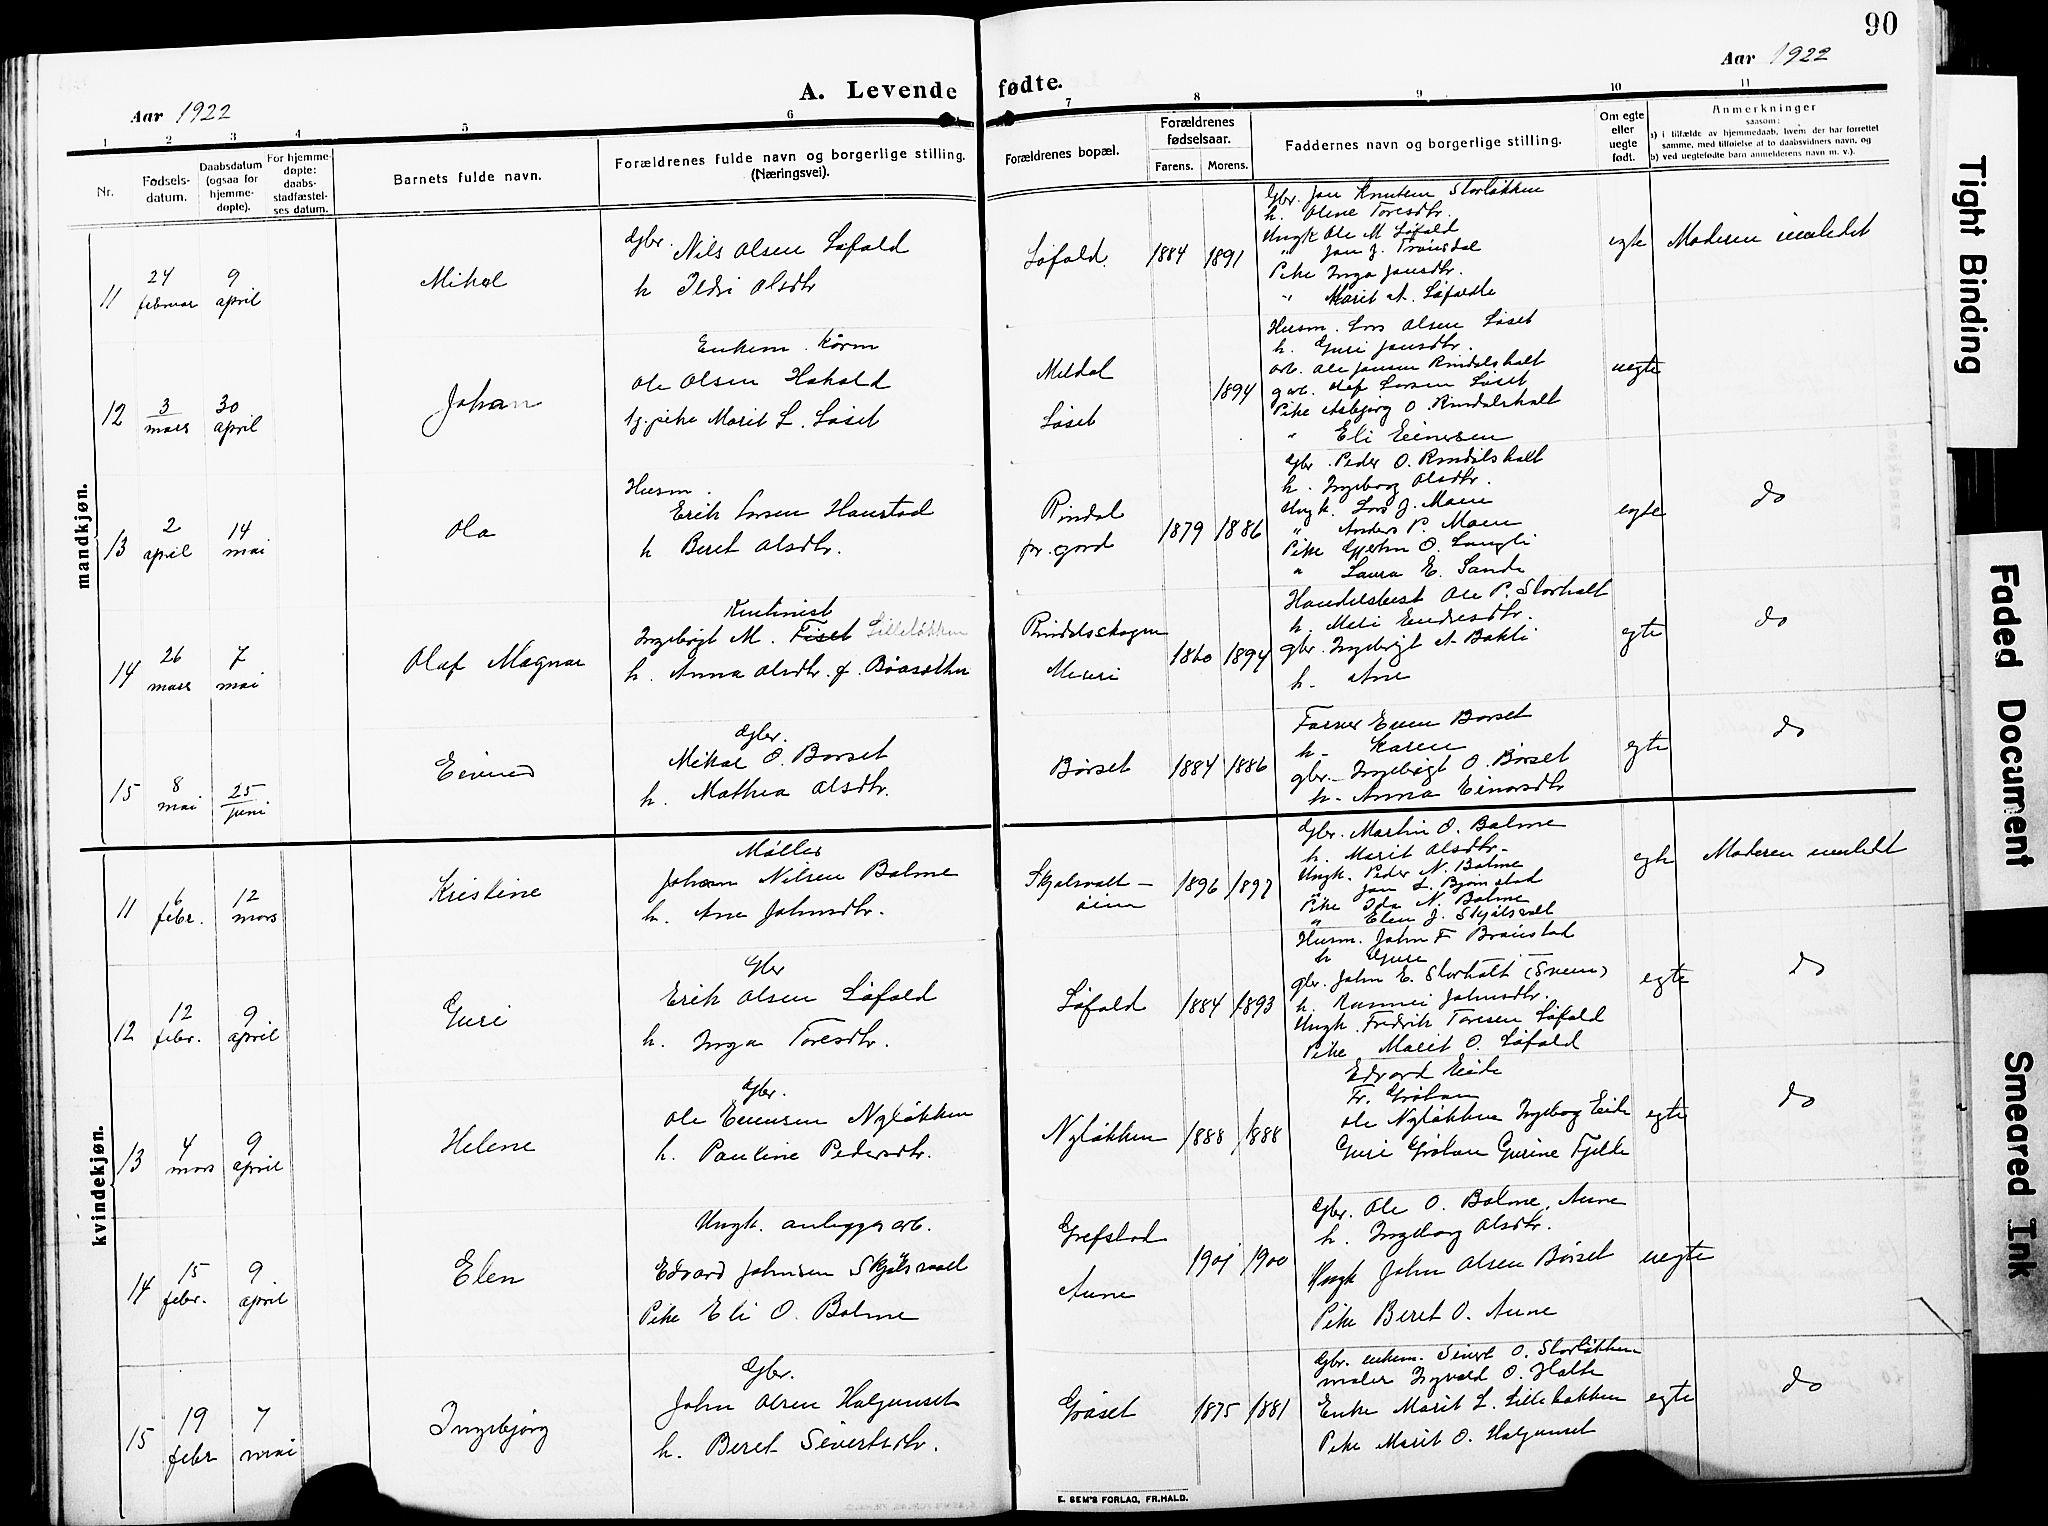 90
Aar 1922
Aar 1922
A. Levende fødte.
1 2 3 4 5 6 7 8 9 10 11
Nr.
Fødsels-
datum.
Daabsdatum
(ogsaa for
hjemme-
døpte).
For hjemme-
døpte:
daabs-
stadfæstel-
ses datum.
Barnets fulde navn.
Forældrenes fulde navn og borgerlige stilling.
(Næringsvei).
Forældrenes bopæl.
Forældrenes
fødselsaar.
Farens. Morens.
Faddernes navn og borgerlige stilling.
Om egte
eller
uegte
født.
Anmerkninger
saasom:
a) i tilfælde av hjemmedaab, hvem der har forrettet
samme, med tilføielse af to daabsvidners navn, og
b) ved uegtefødte barn anmelderens navn m. v.).
mandkjøn.
11
24
februar
9
april
Mikal
Gbr.
Nils Olsen Løfald
h Ildri Olsdtr
Løfald.
1884 1891
Gbr. Jon Knutsen Storløkken
h. Oline Toresdtr.
Ungk Ole M Løfald
" Jon J. Trønsdal
Pike Inga Jonsdtr.
" Marit A. Løfaldli
egte
Moderen innledet
12
3
mars
30
april
Johan
Enkem.
Ole Olsen
Ug. pike Marit L. Løset
Meldal
Løset
1894
Husm. Lars Olsen Løset
h. Guri Jonsdtr.
arb. Ole Jonsen Rindalsholt
Olaf Larsen Løset
Pike Asbjørg O. Rindalsholt
" Eli Einersen
uegte
13
2
april
14
mai
Ola
Husm.
Erik Larsen Haustad
h Beret Olsdtr.
Rindal
pr. gard
1879 1886
Gbr. Peder O. Rindalsholt
h. Ingeborg Olsdtr.
Ungk. Lars J. Moen
" Anders P. Moen
Pike O. Langli
" Laura E. Sande
egte
do
14
26
mars
7
mai
Olaf Magnar
Ingebrigt M. Fiset Lilleløkken
h. Anna Olsdtr. f. Bøasæther
Rindalsskogen
1860 1894
Ole P. Storholt
h. Mali Endresdtr.
gbr. Ingebrigt A Bakli
h. Ane
egte
do
15
8
mai
25
juni
Eivind
Gbr.
Mikal O. Børset
h. Mathea Olsdtr.
Børset
1884 1886
Even Børset
h. Karen
gbr. Ingebrigt O. Børset
h. Anna Einarsdtr
egte
do
kvindekjøn.
11
6
febr.
12
mars
Kristine
Møller
Johan Nilsen Bolme
h. Ane Johnsdtr.
Skjølsvold-
øien
1896 1897
Gbr. Martin O. Bolme
h. Marit Olsdtr.
Ungk. Peder N. Bolme
Jon L. Bjørnstad
Pike Ida N. Bolme
" Elen J. Skjølsvold
egte
Moderen innledt
12
12
febr.
9
april
Guri
Gbr
Erik Olsen Løfald
h. Inga Toresdtr.
Løfald
1884 1893
Husm. John F Brønstad
h Guri
gbr. John E. Storholt (Sveen)
h. Johnsdtr.
Ungk. Fredrik Toresen Løfald
Pike Marit O. Løfald
egte
do
13
4
mars
9
april
Helene
Gbr.
Ole Evensen Nyløkken
h. Pauline Pedersdtr.
Nyløkken
1888 1888
Edvard Eide
Fr. Grøtan
Ole Nyløkken Ingeborg Eide
Guri Grøtan Gurine Fjelde
egte
do
14
15
febr.
9
april
Elen
Ungk. anleggsarb.
Edvard Johnsen Skjølsvold
Pike Eli O. Bolme
Grefstad
Aune
1901 1900
Gbr. Ole O. Bolme, Aune
h. Ingeborg Olsdtr.
Ungk John Olsen Børset
Pike Beret O. Aune
uegte
15
19
febr
7
mai
Ingebjørg
Gbr.
John Olsen Halgunset
h. Beret Sivertsdtr.
Gråset
1875 1881
Gbr. enkem. Sivert O. Storløkken
maler Ingvald O. Holte
Enke Marit L. Lilleløkken
Pike Marit O. Halgunset
egte
do
E. SEM'S FORLAG, FR.HALD.
Tight Binding
Faded Document
Smeared Ink